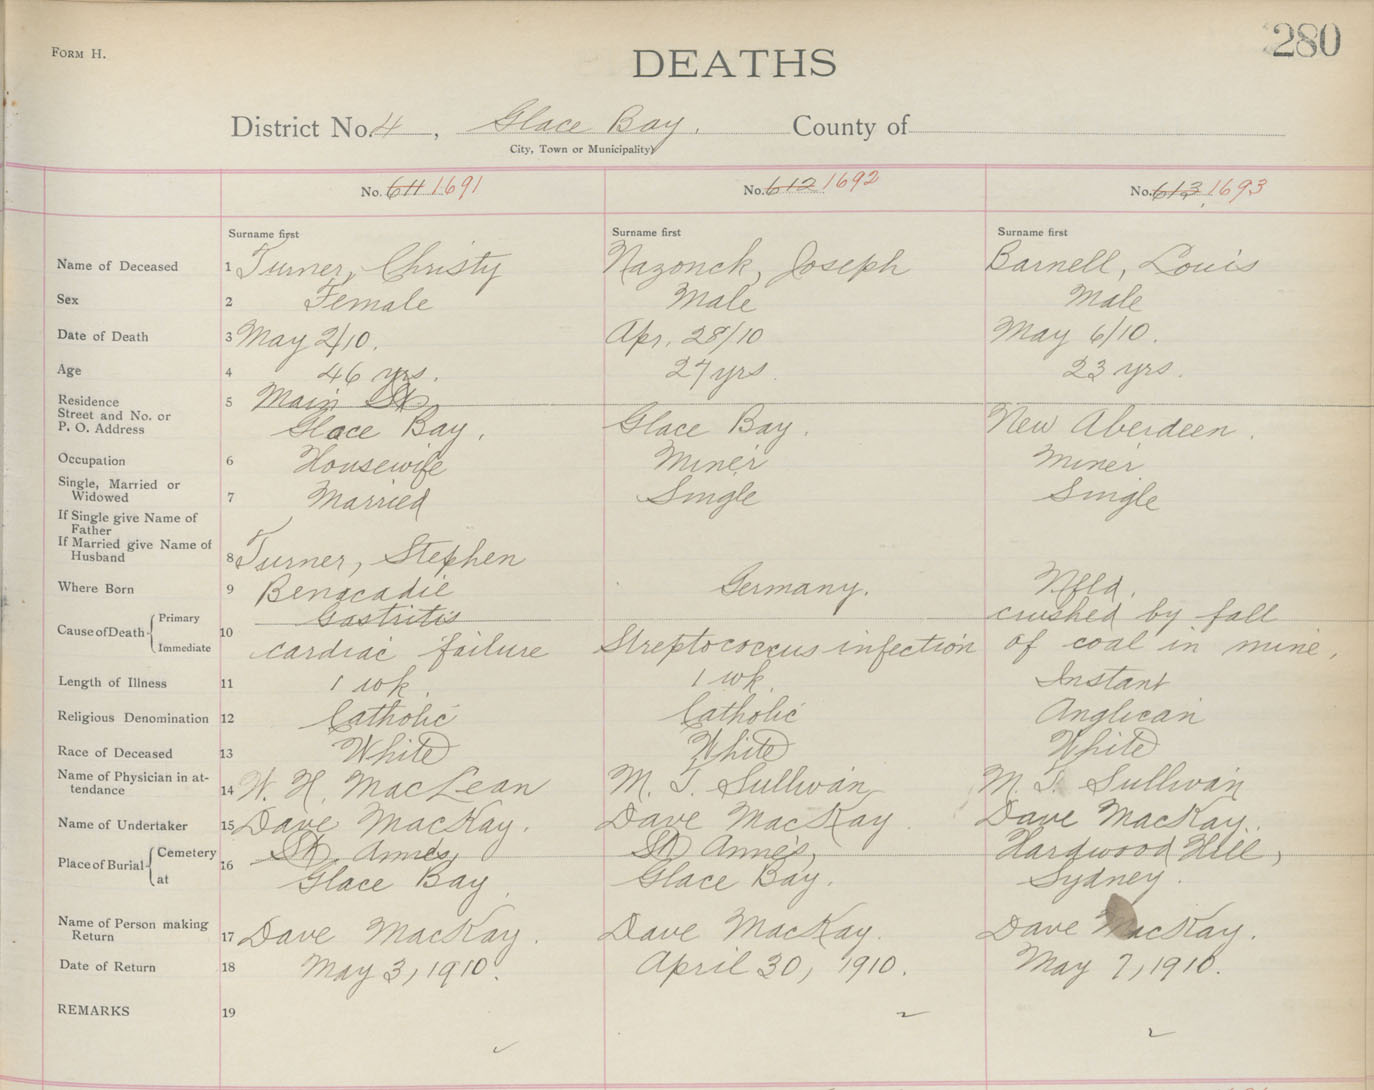 FORM H.
280
DEATHS
District No. 4, Glace Bay. County of
City, Town or Municipality)
No. 611 1691 No. 612 1692 No. 613 1693
Surname first Surname first Surname first
Name of Deceased 1 Turner, Christy Nazonck, Joseph Barnell, Louis
Sex 2 Female Male Male
Date of Death 3 May 2/10. Apr. 28/10 May 6/10.
Age 4 46 yrs. 27 yrs. 23 yrs.
Residence 5 Main St.
Street and No. or
P. O. Address Glace Bay. Glace Bay. New Aberdeen.
Occupation 6 Housewife Miner Miner
Single, Married or
Widowed 7 Married Single Single
If Single give Name of
Father
If Married give Name of
Husband 8 Turner, Stephen
Where Born 9 Benacadie Germany. Nfld.
Cause of Death Primary 10 Gastritis crushed by fall
Immediate cardiac failure Streptococcus infection of coal in mine.
Length of Illness 11 1 wk. 1 wk. Instant
Religious Denomination 12 Catholic Catholic Anglican
Race of Deceased 13 White White White
Name of Physician in at-
tendance 14 W. H. MacLean M. T. Sullivan M. T. Sullivan
Name of Undertaker 15 Dave MacKay. Dave MacKay. Dave MacKay.
Place of Burial Cemetery 16 St. Anne's, St. Anne's, Hardwood Hill,
at Glace Bay. Glace Bay. Sydney.
Name of Person making
Return 17 Dave MacKay. Dave MacKay. Dave MacKay.
Date of Return 18 May 3, 1910. April 30, 1910. May 7, 1910.
REMARKS 19